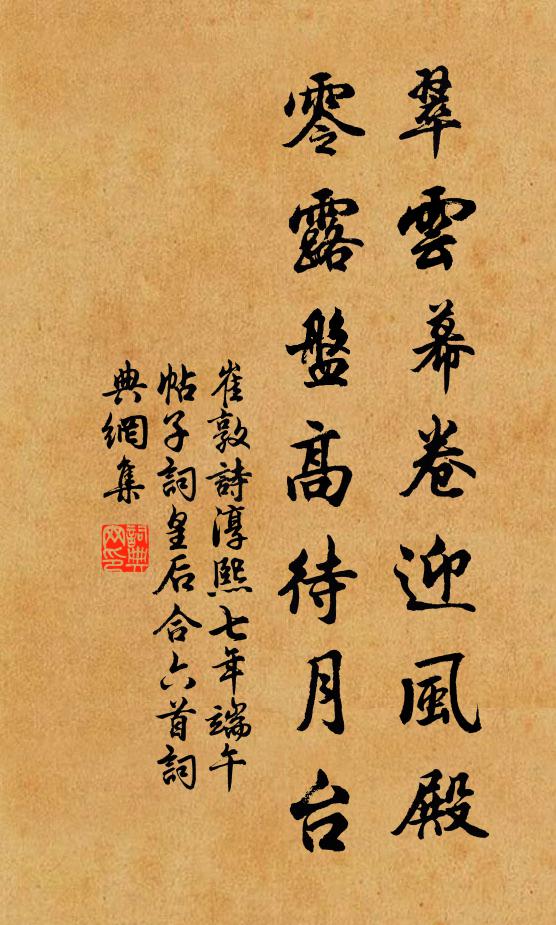 翠雲幕卷迎風殿
零露盤高待月台
崔敦詩淳熙七年端午
帖子詞皇后合六首詞
典網集
詞典网印